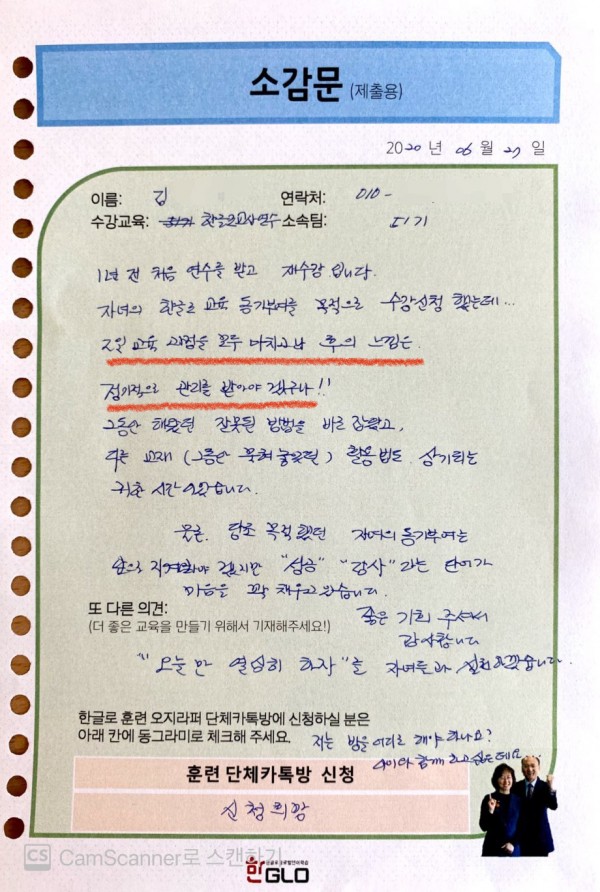 소감문 (제출용)
2020 년 06 월 27 일
이름: 김 연락처: 010-
수강교육: 한글로교사연수 소속팀: 51기
1년 전 처음 연수를 받고 재수강 입니다.
자녀의 한글로 교육 동기부여를 목적으로 수강신청 했는데...
2일 교육 과정을 모두 마치고난 후의 느낌은.
정기적으로 관리를 받아야 겠구나!!
그동안 해왔던 잘못된 방법을 바로 잡았고,
다른 교재 (그동안 묵혀 놓았던) 활용법도 상기되는
귀한 시간 이었습니다.
물론. 당초 목적했던 자녀의 동기부여는
앞으로 지켜봐야 겠지만 "성공" "감사" 라는 단어가
마음을 꽉 채우고 있습니다.
또 다른 의견:
(더 좋은 교육을 만들기 위해서 기재해주세요!)
좋은 기회 주셔서
감사합니다
"오늘만 열심히 하자"를 자녀들과 실천하겠습니다.
한글로 훈련 오지라퍼 단체카톡방에 신청하실 분은
아래 칸에 동그라미로 체크해 주세요.
저는 방을 어디로 해야 하나요?
아이와 함께 하고 싶은데요...
훈련 단체카톡방 신청
신청희망
CS CamScanner로 스캔하기
한GLO